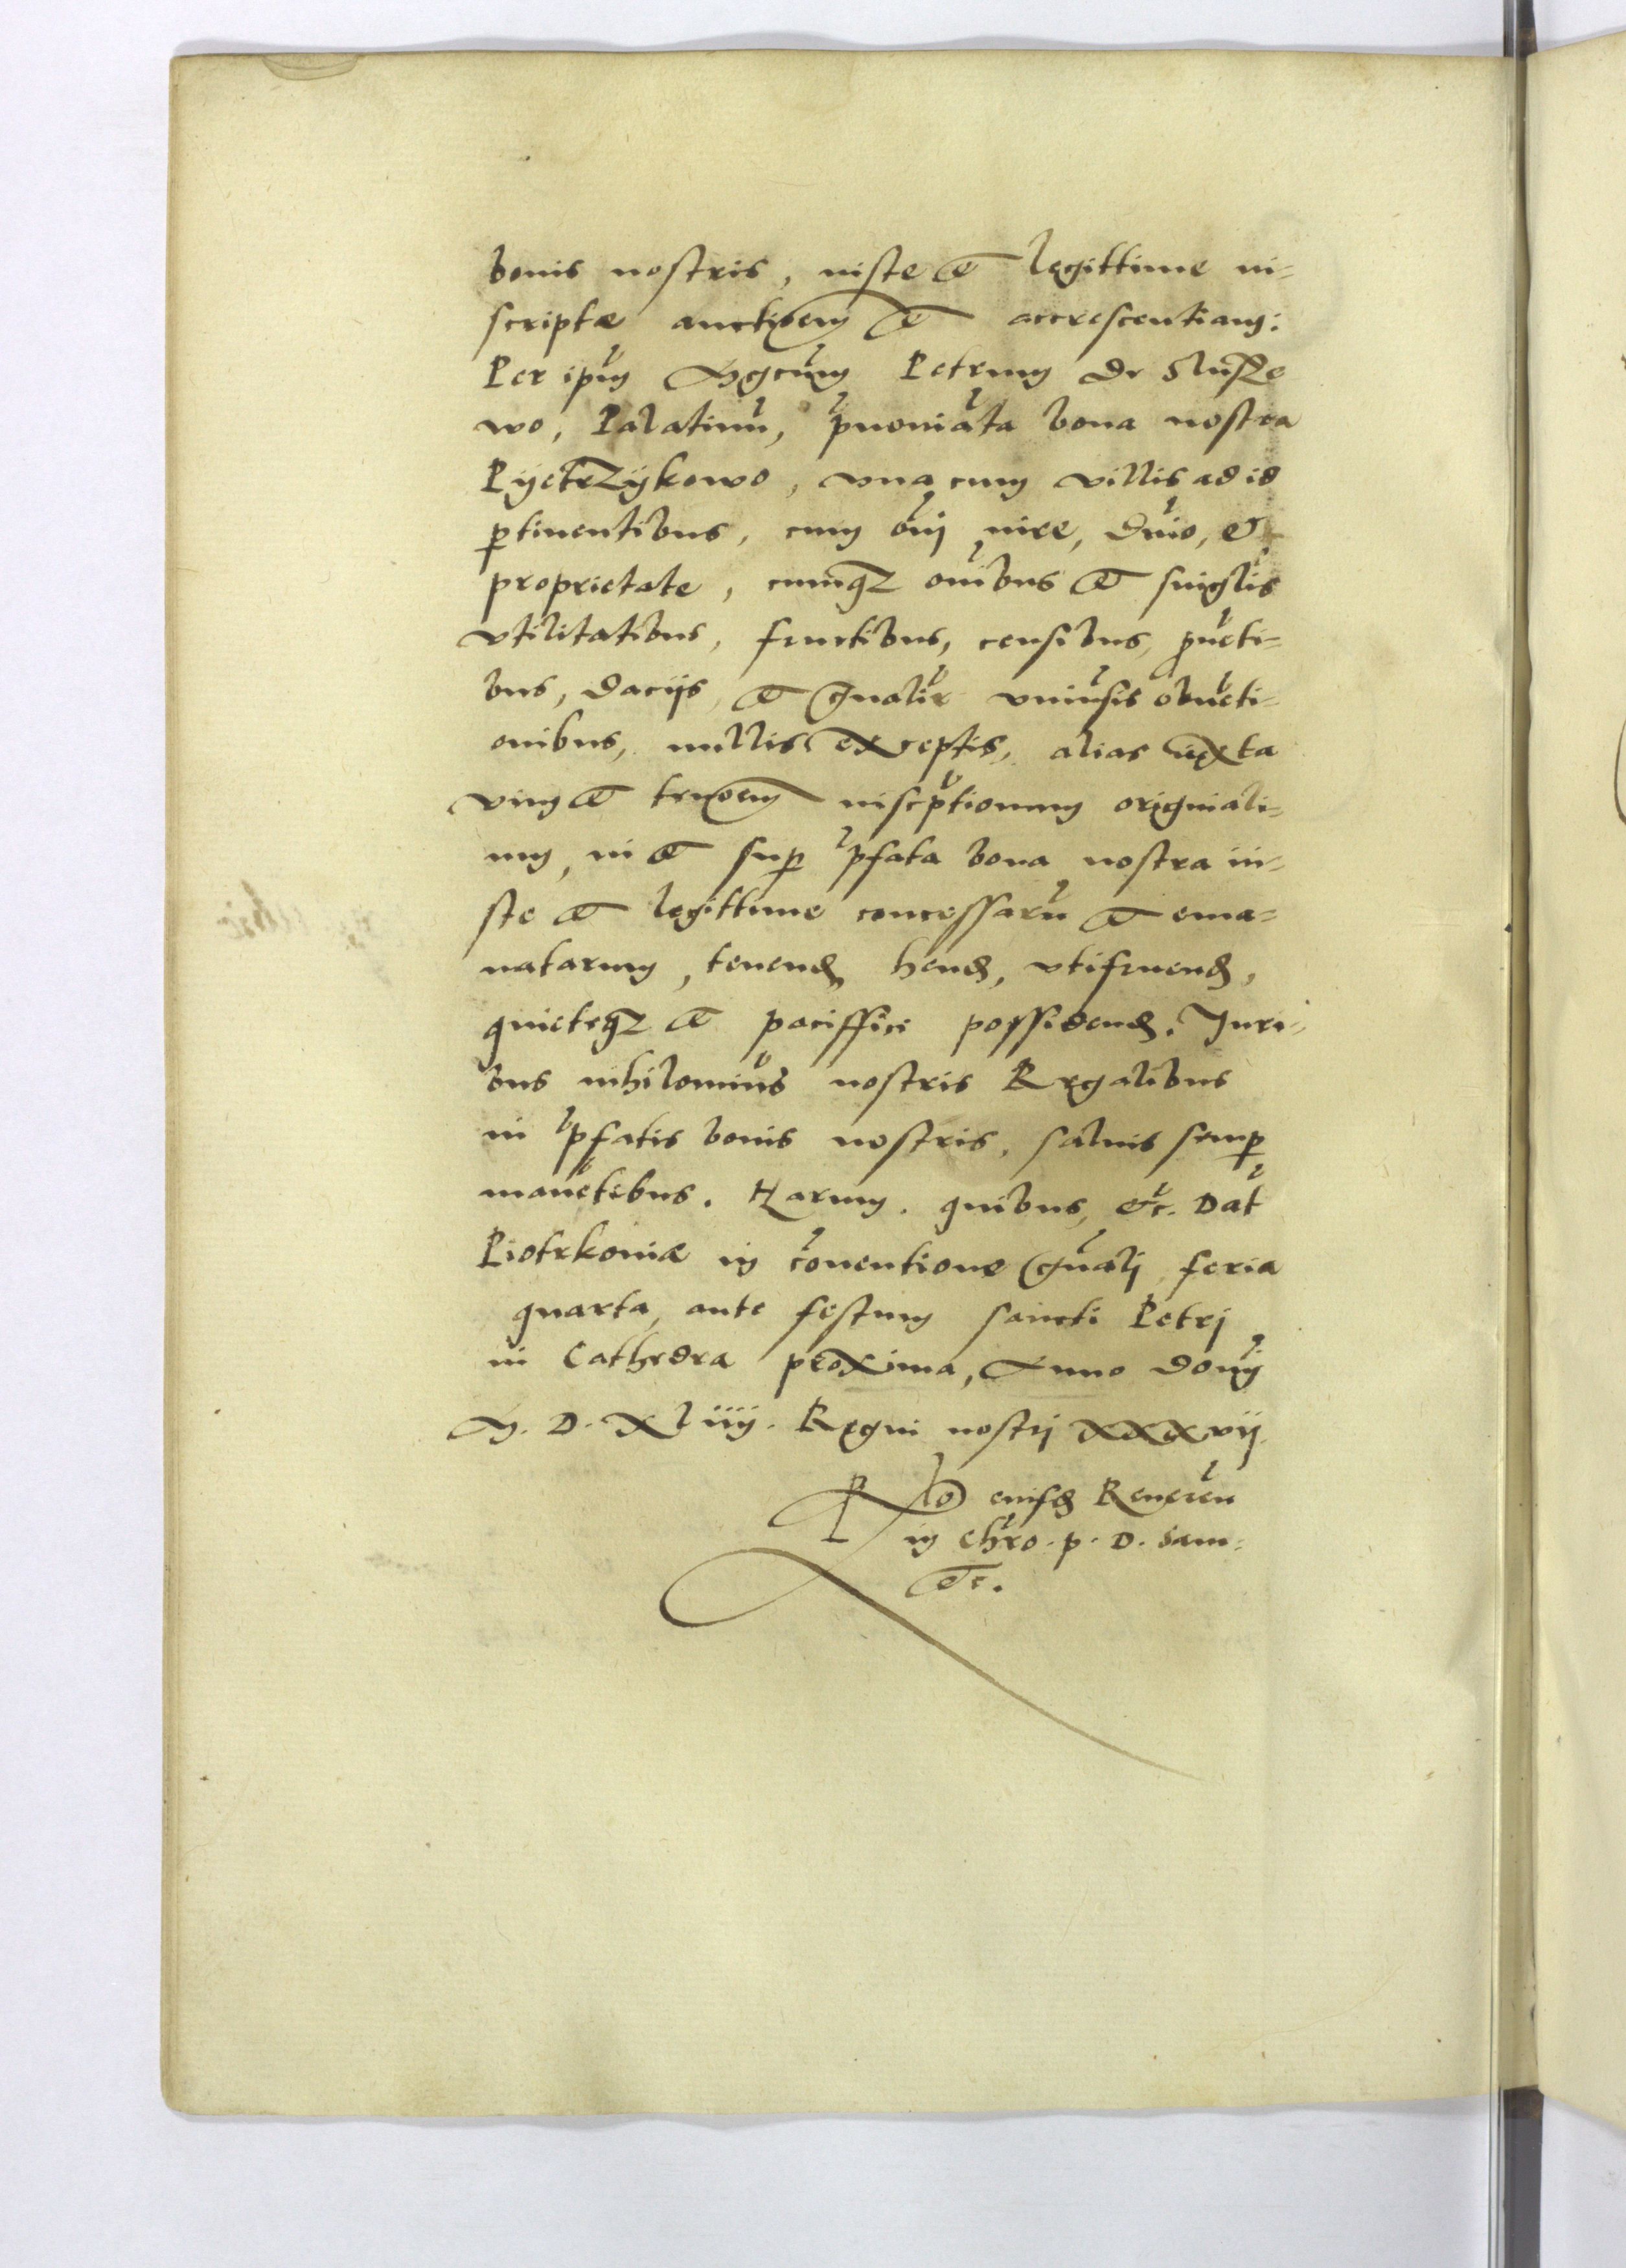 bonis nostris, iuste et legittime in-
scriptæ auctioem et accrescentiam:
Per ipm Mgcum Petrum de Sluſze
wo, Palatinu, pnominata bona nostra
Pyetrzykowo, vna cum villis ad id
ptinentibus, cum oni iure, dnio, et
proprietate, cumqz onibus et singlis
vtilitatibus, fructibus, censibus, puēti-
bus, dacijs, et gnalir vniusis obuēti-
onibus, nullis exceptis, alias iuxta
vim et tenoem inscptionum originali-
um, in et sup pfata bona nostra iu-
ste et legittime concessaru et ema-
natarum, tenend hend, vtifruend,
quieteqz et paciffici possidend. Juri-
bus nihilominus nostris Regalibus
in pfatis bonis nostris, saluis semp
manētibus. Harum. quibus, etc. Dat
Piotrkoniæ in conuentione gnali, feria
quarta, ante festum sancti Petri
in Cathedra proxima, Anno domi
M. D. XLiiij. Regni nostri xxxvij.
Rlo eiusd Reueren
in Chro. p. D. Sam:
etc.